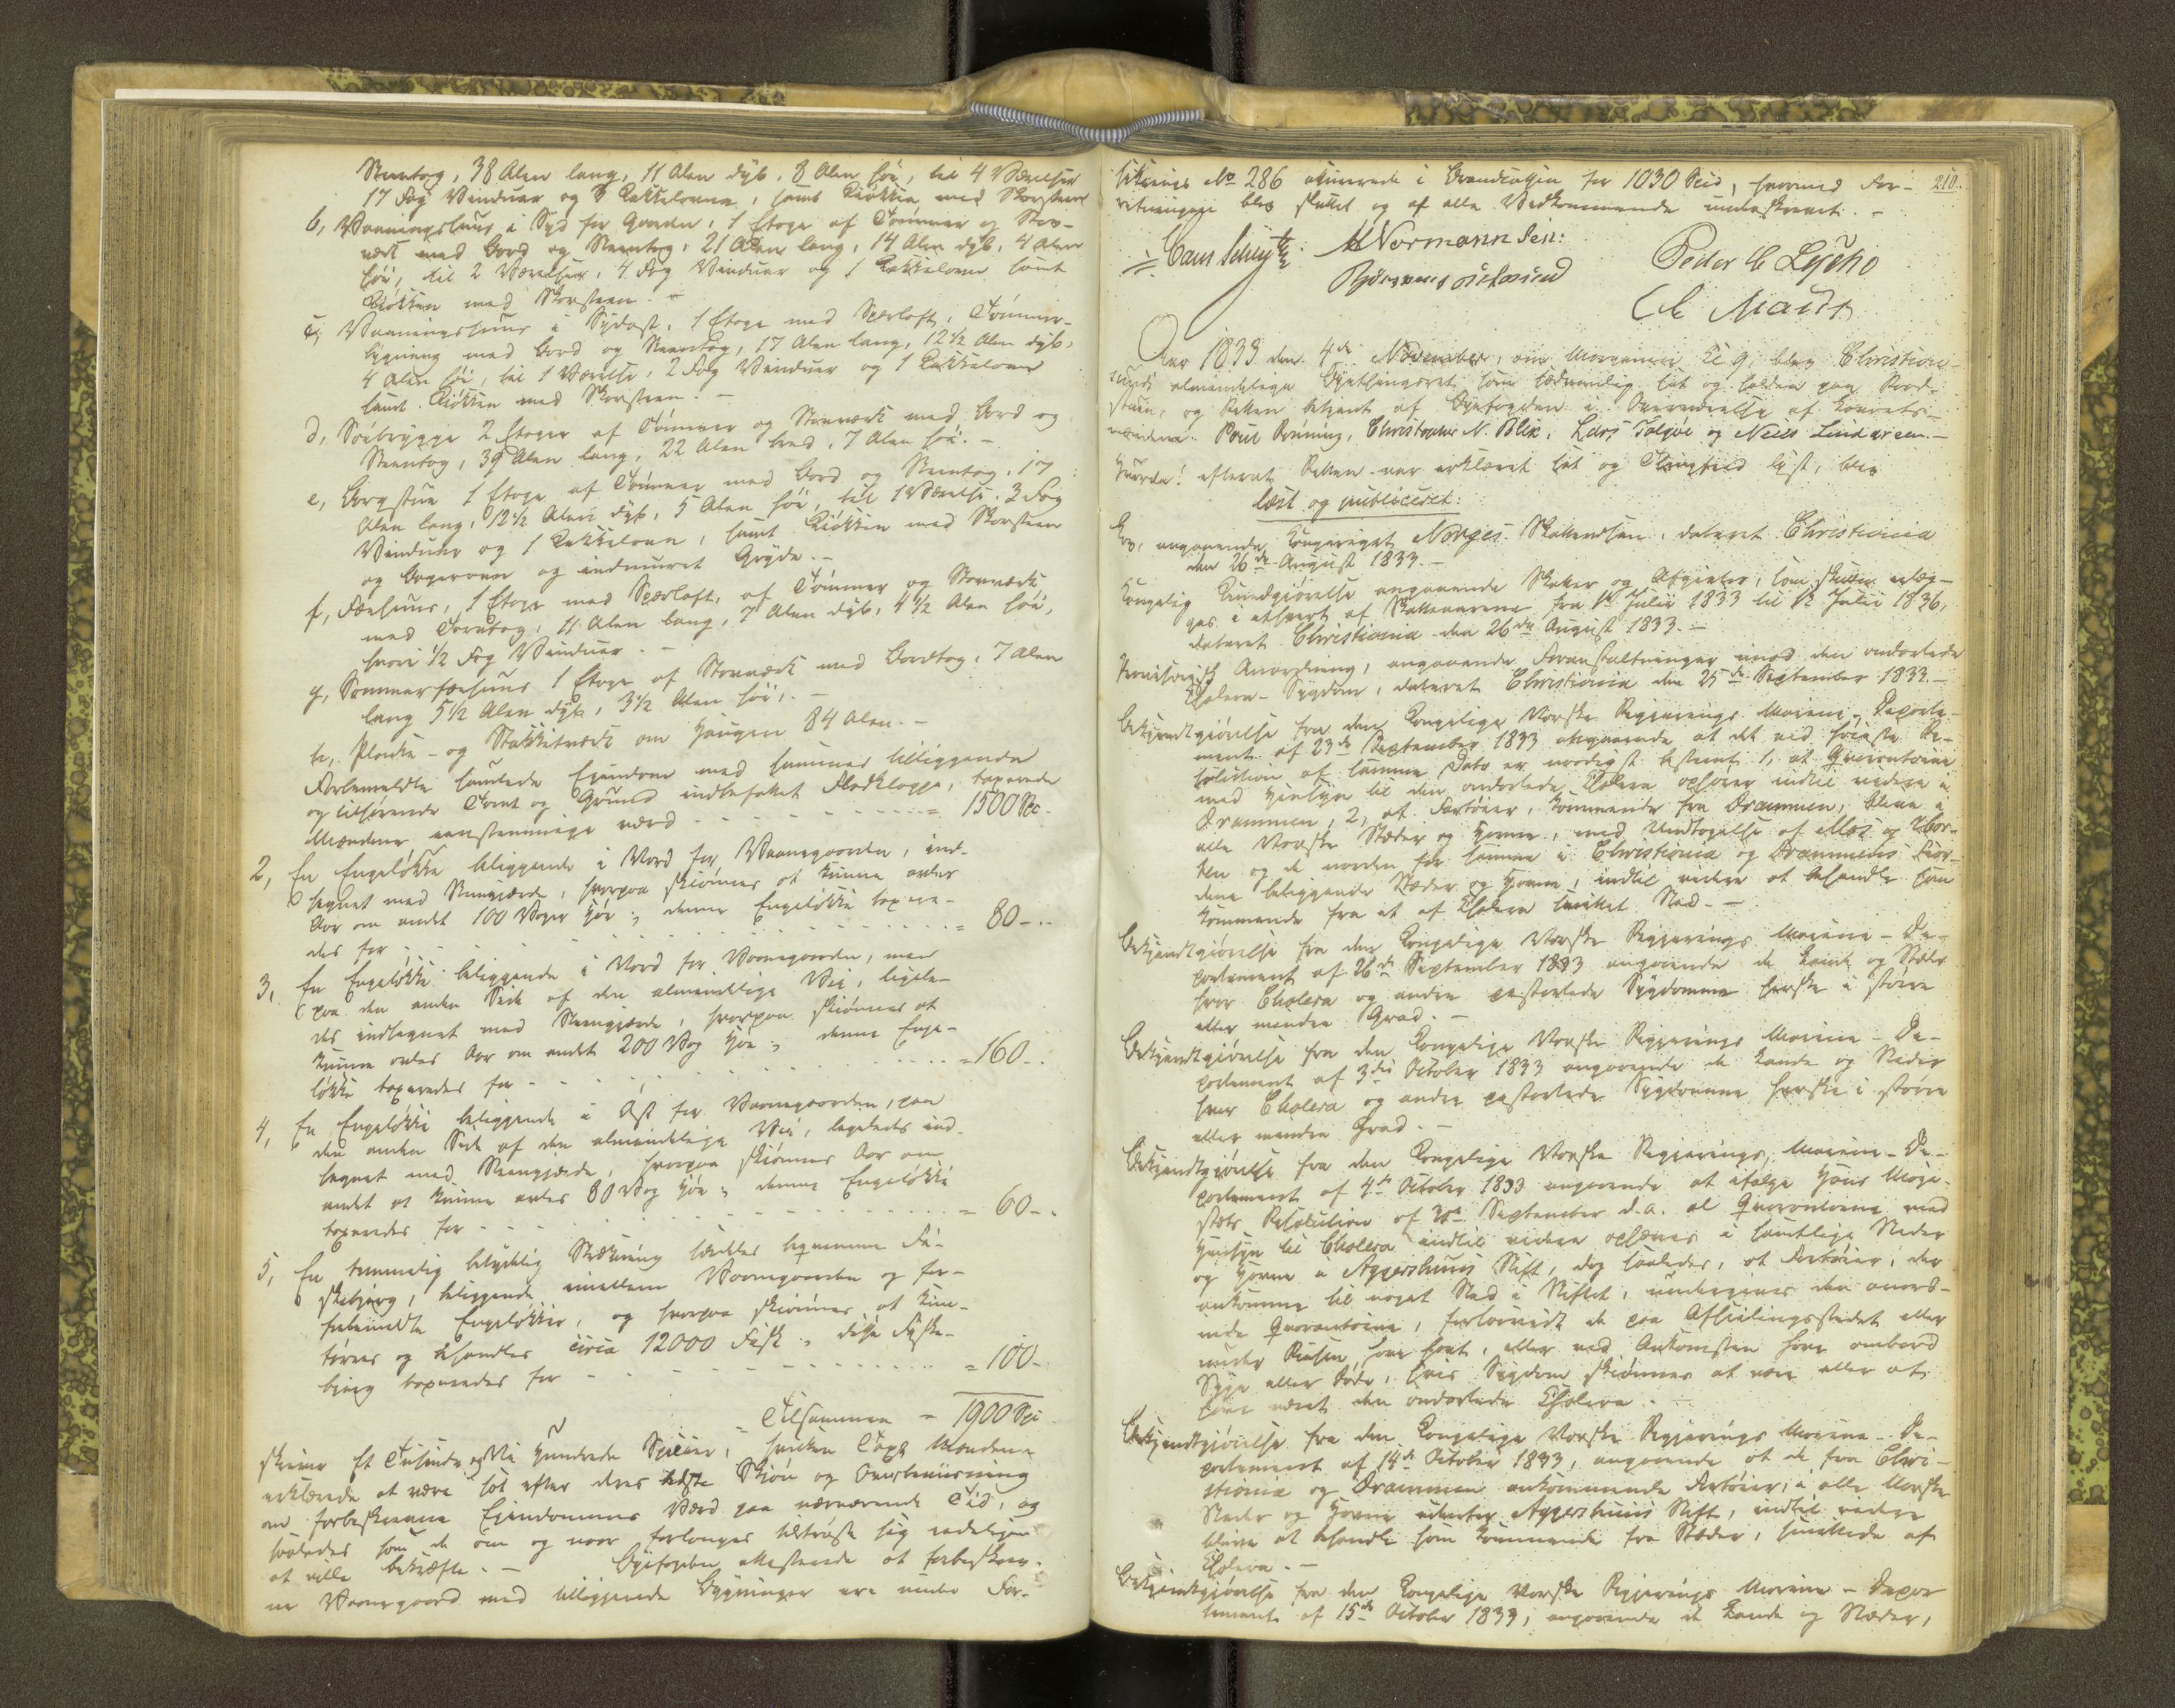 Steentag, 38 Alen lang, 11 Alen dyb, 8 Alen høi, til 4 Værelser
17 Fag Vinduer og 3 Kakkelovne, samt Kiøkken med Skorsteen
b, Vaaningshuus i Syd for Gaarden, 1 Etage af Tømmer og Stav-
værk med Bord og Steentag, 21 Alen lang, 14 Alen dyb, 4 Alen
høi, til 2 Værelser, 4 Fag Vinduer og 1 Kakkelovn samt
Kiøkken med Skorsteen. -
c, Vaaningshuus i Sydost, 1 Etage med Sperloft, Tømmer-
bygning med Bord og Steentag, 17 Alen lang, 12 1/2 Alen dyb,
4 Alen høi, til 1 Værelse, 2 Fag Vinduer og 1 Kakkelovn
samt Kiøkken med Skorsteen. -
d, Søebrygge 2 Etager af Tømmer og Stavværk med Bord og
Steentag, 39 Alen lang, 22 Alen bred, 7 Alen høi. -
e, Borgstue 1 Etage af Tømmer med Bord og Steentag, 17
Alen lang, 12 1/2 Alen dyb, 5 Alen høi, til 1 Værelse, 3 Fag
Vinduer og 1 Kakkelovn, samt Kiøkken med Skorsteen
og Bagerovn og indmuret Gryde. -
f, Fæehuus, 1 Etage med Sperloft, af Tømmer og Stavværk
med Torvtag, 11 Alen lang, 7 Alen dyb, 4 1/2 Alen høi,
hvori 1/2 Fag Vinduer. -
g, Sommerfæehuus 1 Etage af Stavværk med Bordtag, 7 Alen
lang 5 1/2 Alen dyb, 3 1/2 Alen høi. -
h, Planke- og Stakkitværk om Haugen 84 Alen. -
Forbemeldte samlede Eiendom med sammes tilliggende
og tilhørende Tomt og Grund indbefattet taxerede
Mændene eenstemmige værd - - - = 1500 Spd.
2, En Engeløkke beliggende i Nord for Vaaningaarden, ind-
hegnet med Steengjerde, hvorpaa skiønnes at kunne avles
Aar om andet 100 Voger Høe; denne Engeløkke taxere-
des for - - - = 80 - -
3, En Engeløkke beliggende i Nord for Vaaningaarden, men
paa den anden Side af den almindelige Vei, ligele-
des indhegnet med Steengjerde, hvorpaa skiønnes at
kunne avles Aar om andet 200 Vog Høe; denne Enge-
løkke taxeredes for - - - = 160 - -
4, En Engeløkke beliggende i Øst for Vaaningaarden, paa
den anden Side af den almindelige Vei, ligeledes ind-
hegnet med Steengjerde, hvorpaa skiønnes Aar om
andet at kunne avles 80 Vog Høe; denne Engeløkke
taxeredes for - - - = 60 - -
5, En temmelig betydelig Strækning særdeles beqvemme Fi-
skebjerg, beliggende imellem Vaaningaarden og for-
benævnte Engeløkker, og hvorpaa skiønnes at kun-
tørres og behandles circa 12000 Fisk; disse Fiske-
bjerg taxeredes for - - - = 100 -
Tilsammen = 1900 Spd
skriver Et Tusinde og Ni Hundrede Species, hvilken Taxt Mændene
erklærede at være sat efter deres bedste Skjøn og Overbeviisning
om forbeskrevne Eiendommes Værd paa nærværende Tid, og
saaledes som de om og naar forlanges tiltroede sig edeligen
at ville bekræfte. - Byefogden attesterede at forbeskrev-
ne Vaaningaard med tilliggende Bygninger ere under For-
210.
sikrings No 286 assurerede i Brandcassen for 1030 Spd, hvormed For-
retningen blev sluttet og af alle Vedkommende underskrevet. -
Hans Schrytz: M Normann Sen: Peder C Lycho
C Mandt
Aar 1833 den 4de November, om Morgenen Kl 9 blev Christian-
sunds almindelige Byethingsret som sædvanlig sat og holden paa Raad-
stuen, og Retten betjent af Byefogden i Overværelse af Laurets-
mændene: Poul Brüning, Christopher N. Blix, Lars Tolgøe og Niels Lindgreen. -
Hvorda! efterat Retten var erklæret sat og Thingfred lyst, blev
læst og publiceret:
Lov, angaaende Kongeriget Norges Skattevæsen, dateret Christiania
den 26de August 1833. -
Kongelig Kundgiørelse angaaende Skatter og Afgivter, som skulle erlæg-
ges i ethvert af Skatteaarene fra 1ste Julii 1833 til 1ste Julii 1836,
dateret Christiania den 26de August 1833. -
Provisorisk Anordning, angaaende Foranstaltninger imod den ondartede
Cholera-Sygdom, dateret Christiania den 25de September 1833. -
Bekjendtgiørelse fra den Kongelige Norske Regjerings Marine-Departe-
ment af 23de September 1833 angaaende at det ved høieste Re-
solution af samme Dato er naadigst bestemt 1, at Qvarantaine
med Hensyn til den ondartede Cholera ophører indtil videre i
Drammen, 2, at Fartøier, kommende fra Drammen, blive i
alle Norske Stæder og Havne, med Undtagelse af Moss og Hor-
ten og de norden for samme i Christiania og Drammens Fior-
dene beliggende Stæder og Havne, indtil videre at behandle som
kommende fra et af Cholera smittet Sted. -
Bekjendtgiørelse fra den Kongelige Norske Regjerings Marine-De-
partement af 26de September 1833 angaaende de Lande og Stæder
hvor Cholera og andre pestartede Sygdomme herske i større
eller mindre Grad. -
Bekjendtgiørelse fra den Kongelige Norske Regjerings Marine-De-
partement af 3die October 1833 angaaende de Lande og Steder
hvor Cholera og andre pestartede Sygdomme herske i større
eller mindre Grad. -
Bekjendtgiørelse fra den Kongelige Norske Regjerings Marine-De-
partement af 4de October 1833 angaaende at ifølge Hans Maje-
stæts Resolution af 30te September d. A. al Qvarantaine med
Hensyn til Cholera indtil videre ophæves i samtlige Steder
og Havne i Aggershuus Stift, dog saaledes, at Fartøier, der
ankomme til noget Sted i Stiftet, undergives den anord-
nede Qvarantaine, forsaavidt de paa Afseilingsstedet eller
under Reisen have havt, eller ved Ankomsten have ombord
Syge eller Døde, hvis Sygdom skiønnes at være eller at
have været den ondartede Cholera. -
Bekjendtgiørelse fra den Kongelige Norske Regjerings Marine-De-
partement af 14de October 1833, angaaende at de fra Chri-
stiania og Drammen ankommende Fartøier, i alle Norske
Steder og Havne udenfor Aggershuus Stift, indtil videre
blive at behandle som kommende fra Stæder, smittede af
Cholera. -
Bekjendtgiørelse fra den Kongelige Norske Regjerings Marine-Depar
tement af 15de October 1833, angaaende de Lande og Stæder,